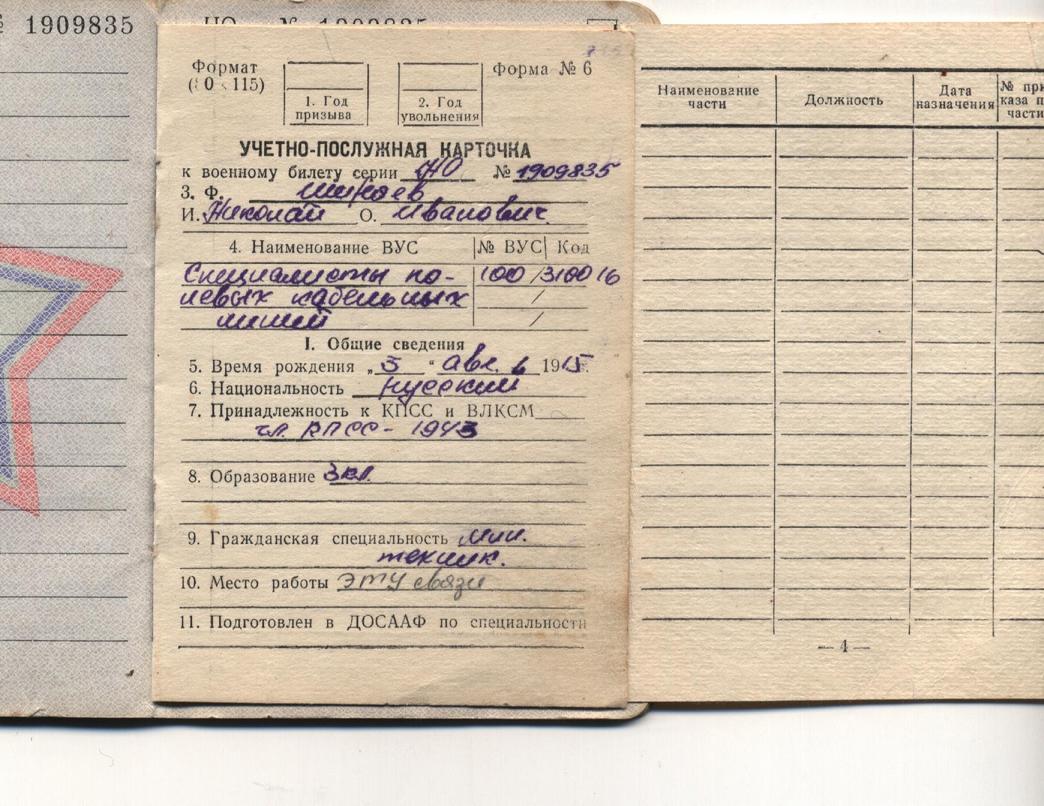 № 1909835
НО № 1909835
Формат
(80×115)
1. Год
призыва
2. Год
увольнения
Форма № 6
УЧЕТНО-ПОСЛУЖНАЯ КАРТОЧКА
к военному билету серии НО № 1909835
3. Ф.
И. Николай О. Иванович
4. Наименование ВУС № ВУС Код
Специалисты по- 100 /3100 16
левых кабельных /
линий /
I. Общие сведения
5. Время рождения „ 3 " авг. 1915
6. Национальность русский
7. Принадлежность к КПСС и ВЛКСМ
чл. КПСС - 1943
8. Образование 3 кл.
9. Гражданская специальность
техник.
10. Место работы ЭТУ связи
11. Подготовлен в ДОСААФ по специальности
Наименование
части
Должность
Дата
назначения
№ при
каза п
части
— 4 —